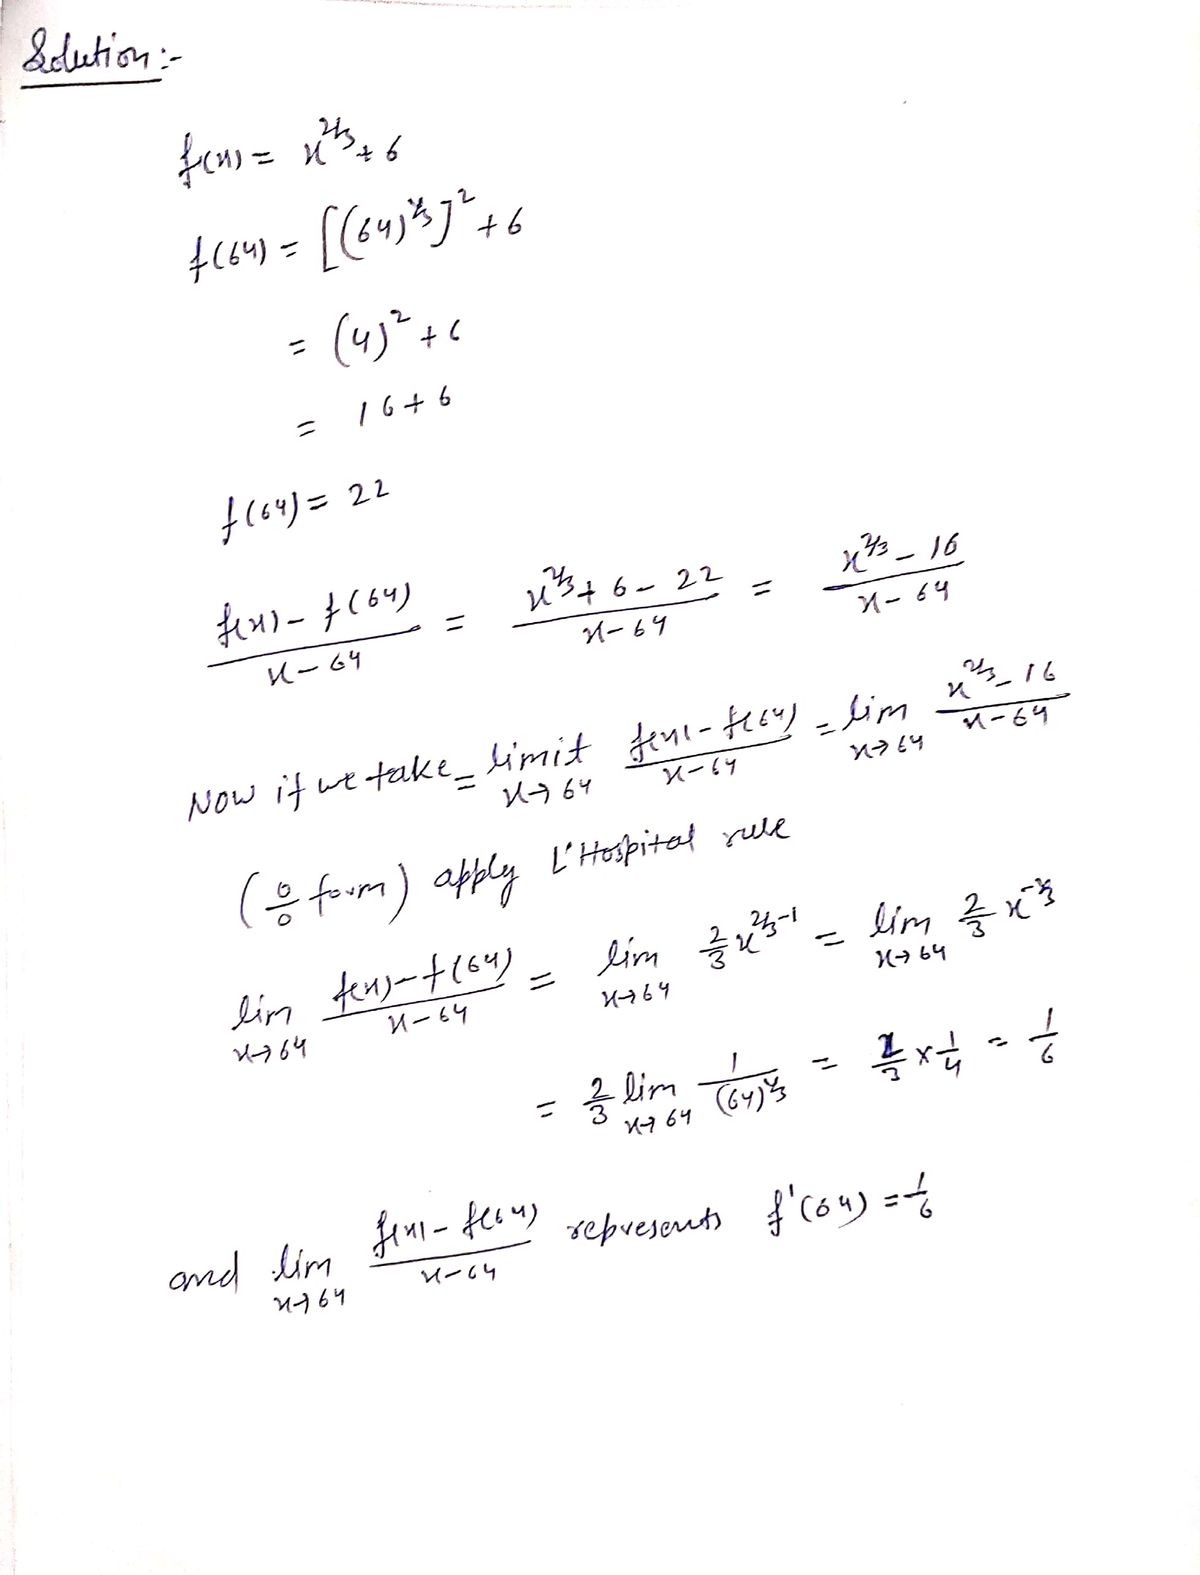 Solution :-
f(x) = x^2/3 + 6
f(64) = [(64)^1/3]^2 + 6
= (4)^2 + 6
= 16 + 6
f(64) = 22
(f(x) - f(64))/(x - 64) = (x^2/3 + 6 - 22)/(x - 64) = (x^2/3 - 16)/(x - 64)
Now if we take = limit x→64 (f(x) - f(64))/(x - 64) = lim x→64 (x^2/3 - 16)/(x - 64)
(0/0 form) apply L'Hospital rule
lim x→64 (f(x) - f(64))/(x - 64) = lim x→64 2/3 x^2/3-1 = lim x→64 2/3 x^-1/3
= 2/3 lim x→64 1/(64)^1/3 = 2/3 × 1/4 = 1/6
and lim x→64 (f(x) - f(64))/(x - 64) represents f'(64) = 1/6